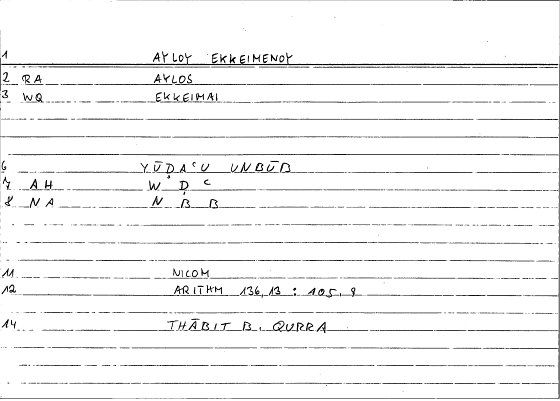 1 AYLOY EKKEIMENOY
2 RA AYLOS
3 WQ EKKEIMAI
6 YŪḌAʿU UNBŪB
7 AH W Ḍ ʿ
8 NA N B B
11 NICOM
12 ARITHM 136,13 : 105,9
14 THĀBIT B. QURRA